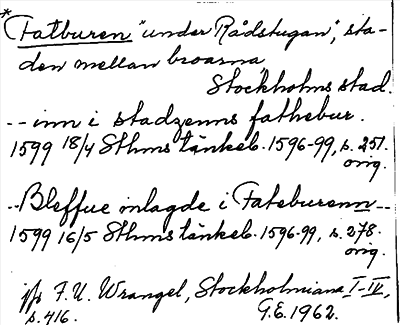 *
(Fatburen "under Rådstugan", sta-
den mellan broarna
Stockholms stad.
-- inn i stadzenns fathebur.
1599 18/4 Sthms tänkeb. 1596-99, s. 251.
orig.
-- Bleffue inlagde i Fateburenn --
1599 16/5 Sthms tänkeb. 1596-99, s. 278.
orig.
jfr F.U. Wrangel, Stockholmiana I-IV,
s. 416. G.E. 1962.